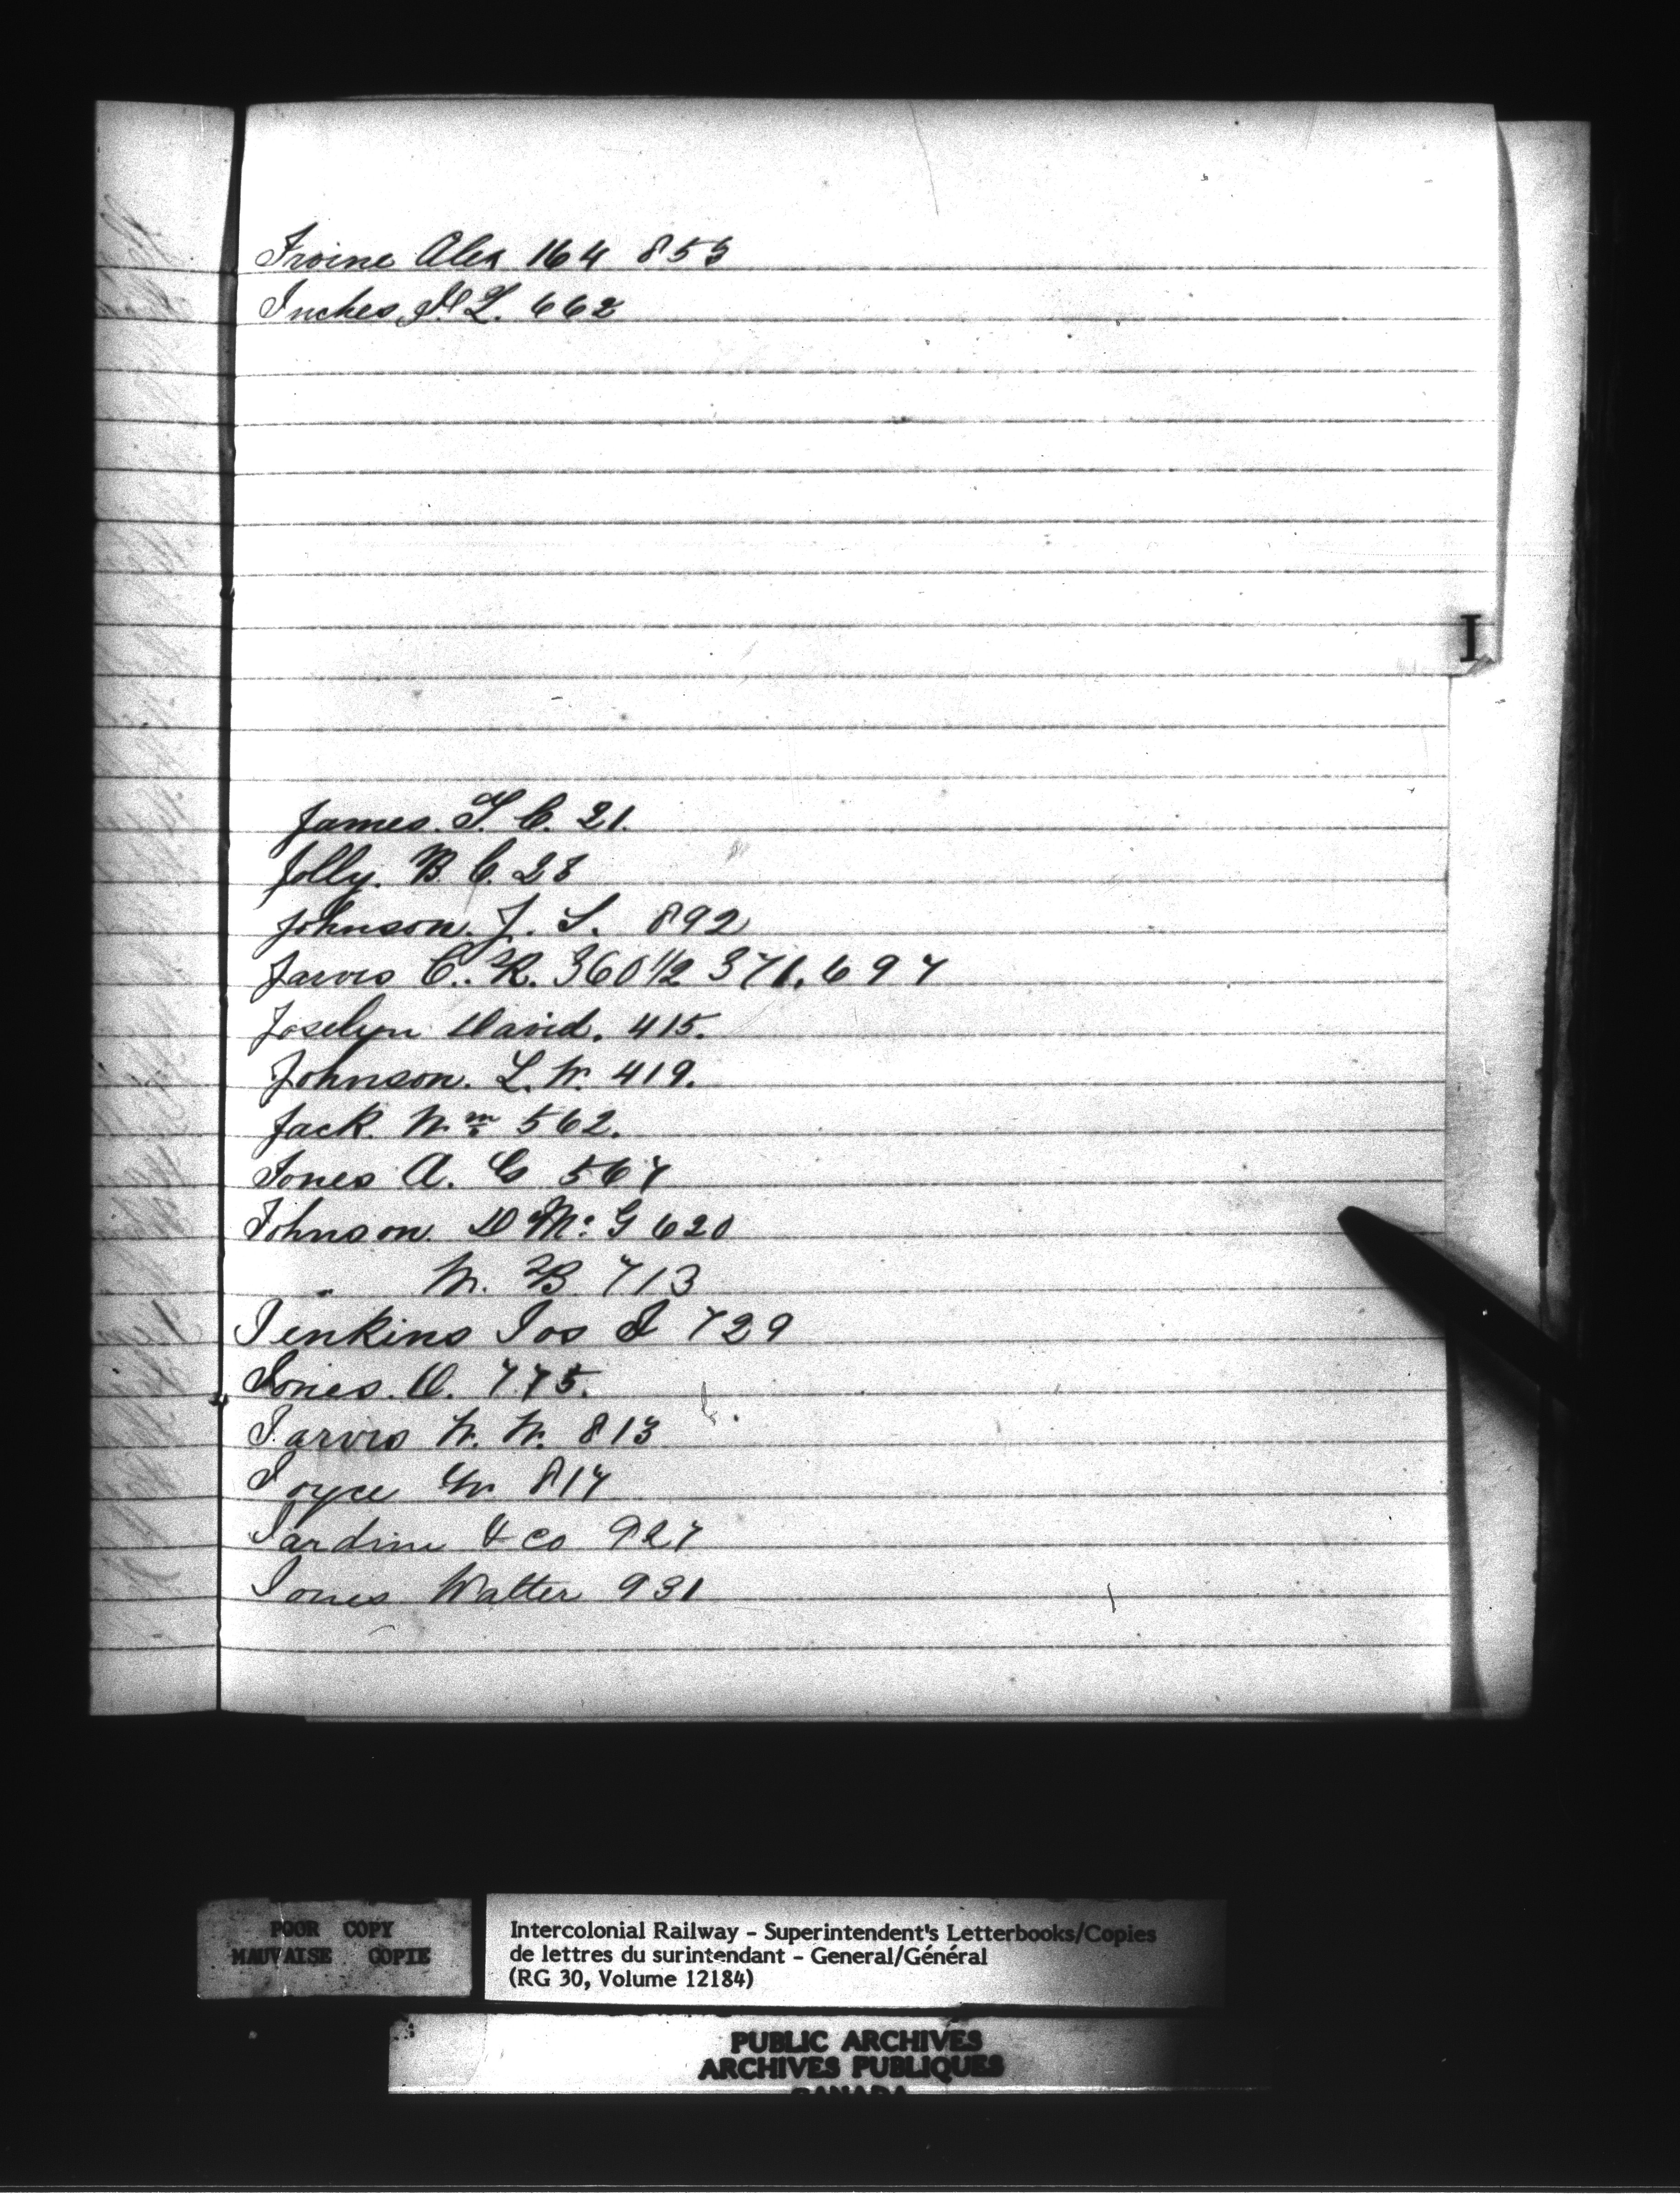 Irvine Alex 164 855
Inches, J. L. 662
I
James. T. C. 21.
Jolly. B. C. 28
Johnson. J. S. 892
Jarvis C. R. 360 1/2 371. 697
Joselyn David. 415.
Johnson. L. W. 419.
Jack. Wm 562.
Jones A. G 567
Johnson. D Mc G 620
" W. B 713
Jenkins Jos J 729
Jones. D. 775.
Jarvis W. W. 813
Joyce 817
Jardine & Co 927
Jones Walter 931
POOR COPY
MAUVAISE COPIE
Intercolonial Railway - Superintendent's Letterbooks/Copies
de lettres du surintendant - General/Général
(RG 30, Volume 12184)
PUBLIC ARCHIVES
ARCHIVES PUBLIQUES
CANADA